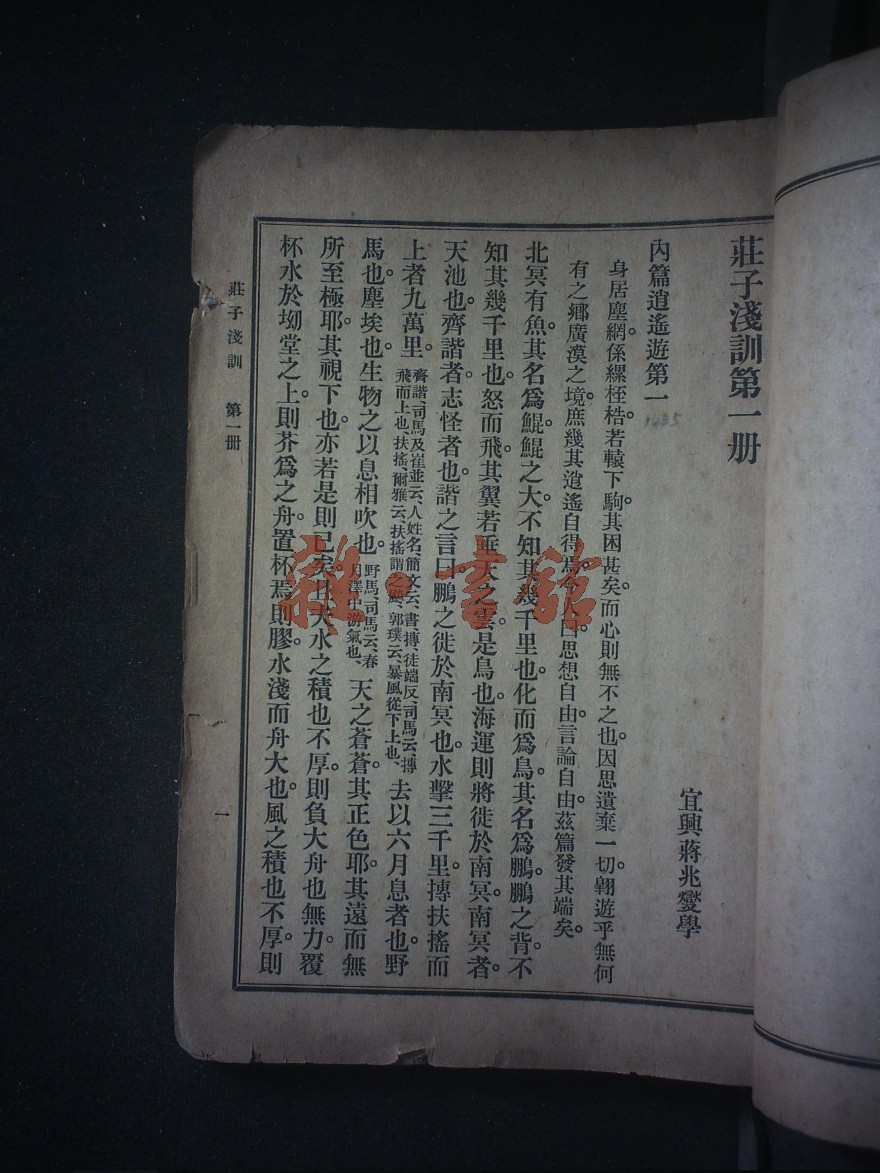 莊子淺訓第一册
宜興蔣兆燮學
內篇逍遙遊第一
1435
身居塵網。係縲桎梏。若轅下駒。其困甚矣。而心則無不之也。因思遺棄一切。翱遊乎無何
有之鄉。廣漠之境。庶幾其逍遙自得焉。今人曰。思想自由。言論自由。茲篇發其端矣。
北冥有魚。其名爲鯤。鯤之大。不知其幾千里也。化而爲鳥。其名爲鵬。鵬之背。不
知其幾千里也。怒而飛。其翼若垂天之雲。是鳥也。海運則將徙於南冥。南冥者。
天池也。齊諧者。志怪者也。諧之言曰。鵬之徙於南冥也。水擊三千里。摶扶搖而
上者九萬里。
齊諧、司馬及崔並云、人姓名、簡文云、書、摶、徒端反、司馬云、摶
飛而上也、扶搖、爾雅云、扶搖謂之飈、郭璞云、暴風從下上也、
去以六月息者也。野
馬也。塵埃也。生物之以息相吹也。
野馬、司馬云、春
月澤中游氣也、
天之蒼蒼。其正色耶。其遠而無
所至極耶。其視下也。亦若是則已矣。且夫水之積也不厚。則負大舟也無力。覆
杯水於坳堂之上。則芥爲之舟。置杯焉則膠。水淺而舟大也。風之積也不厚。則
莊子淺訓 第一册
一
雜·書館